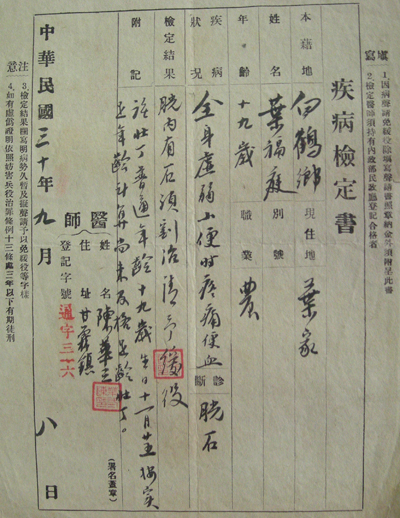 填寫
1.因病聲請免緩役除填寫聲請書照章納金外須附呈此書
2.檢定醫師須持有內政部民政廳登記合格者
疾病檢定書
本籍地 白鶴鄉 現住地 葉家
姓名 葉福庭 別號
年齡 十九歲 職業 農
疾病狀況 全身虛弱小便時疼痛便血 診斷 胱石
檢定結果 胱內有石須割治請予緩役
附記 該壯丁普通年齡十九歲生日十一月廿五按實
足年齡計算尚未及格足齡壯丁。
醫師
姓名 陳華三
住址 甘霖鎮
登記字號 通字三一六
(署名蓋章)
中華民國三十年九月八日
注意
3.檢定結果欄寫明病勢久暫及擬聲請予以免緩役等字樣
4.如有虛偽證明依照妨害兵役治罪條例十三條處三年以下有期徒刑